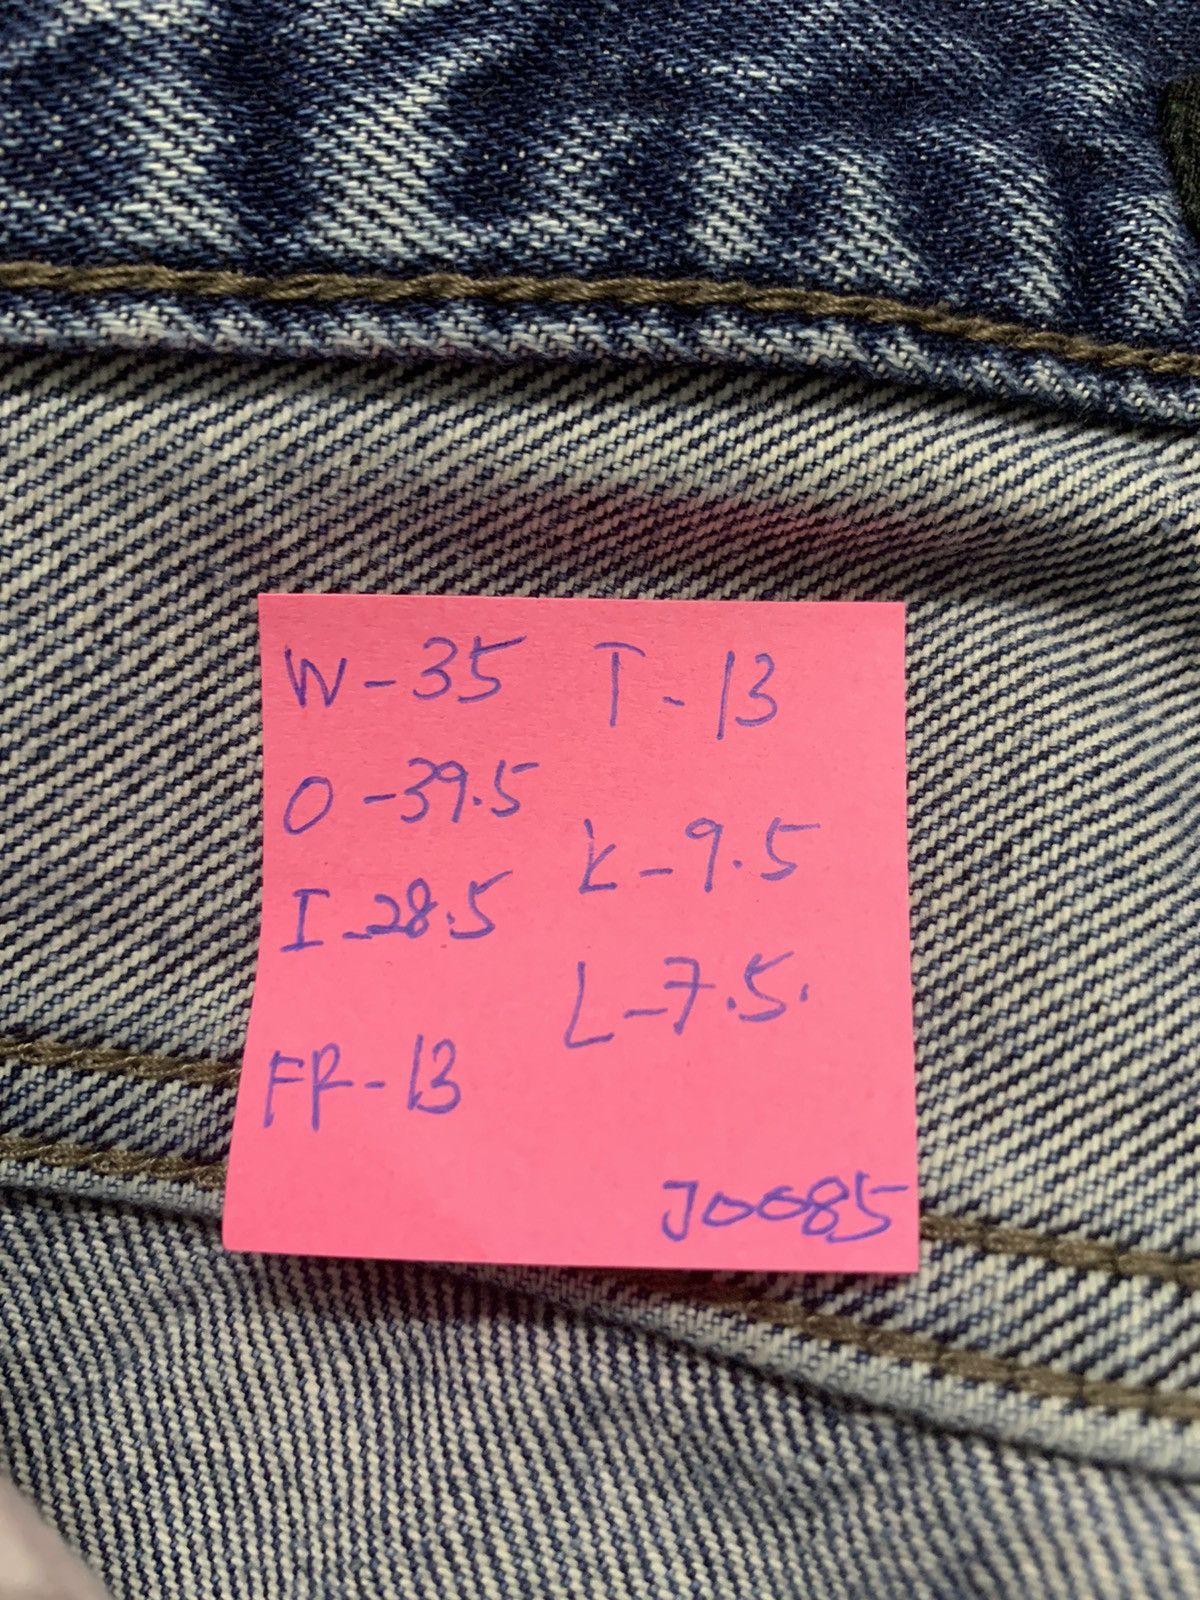 W-35 T-13
O-39.5
K-9.5
I-28.5
L-7.5.
FR-13
J0085